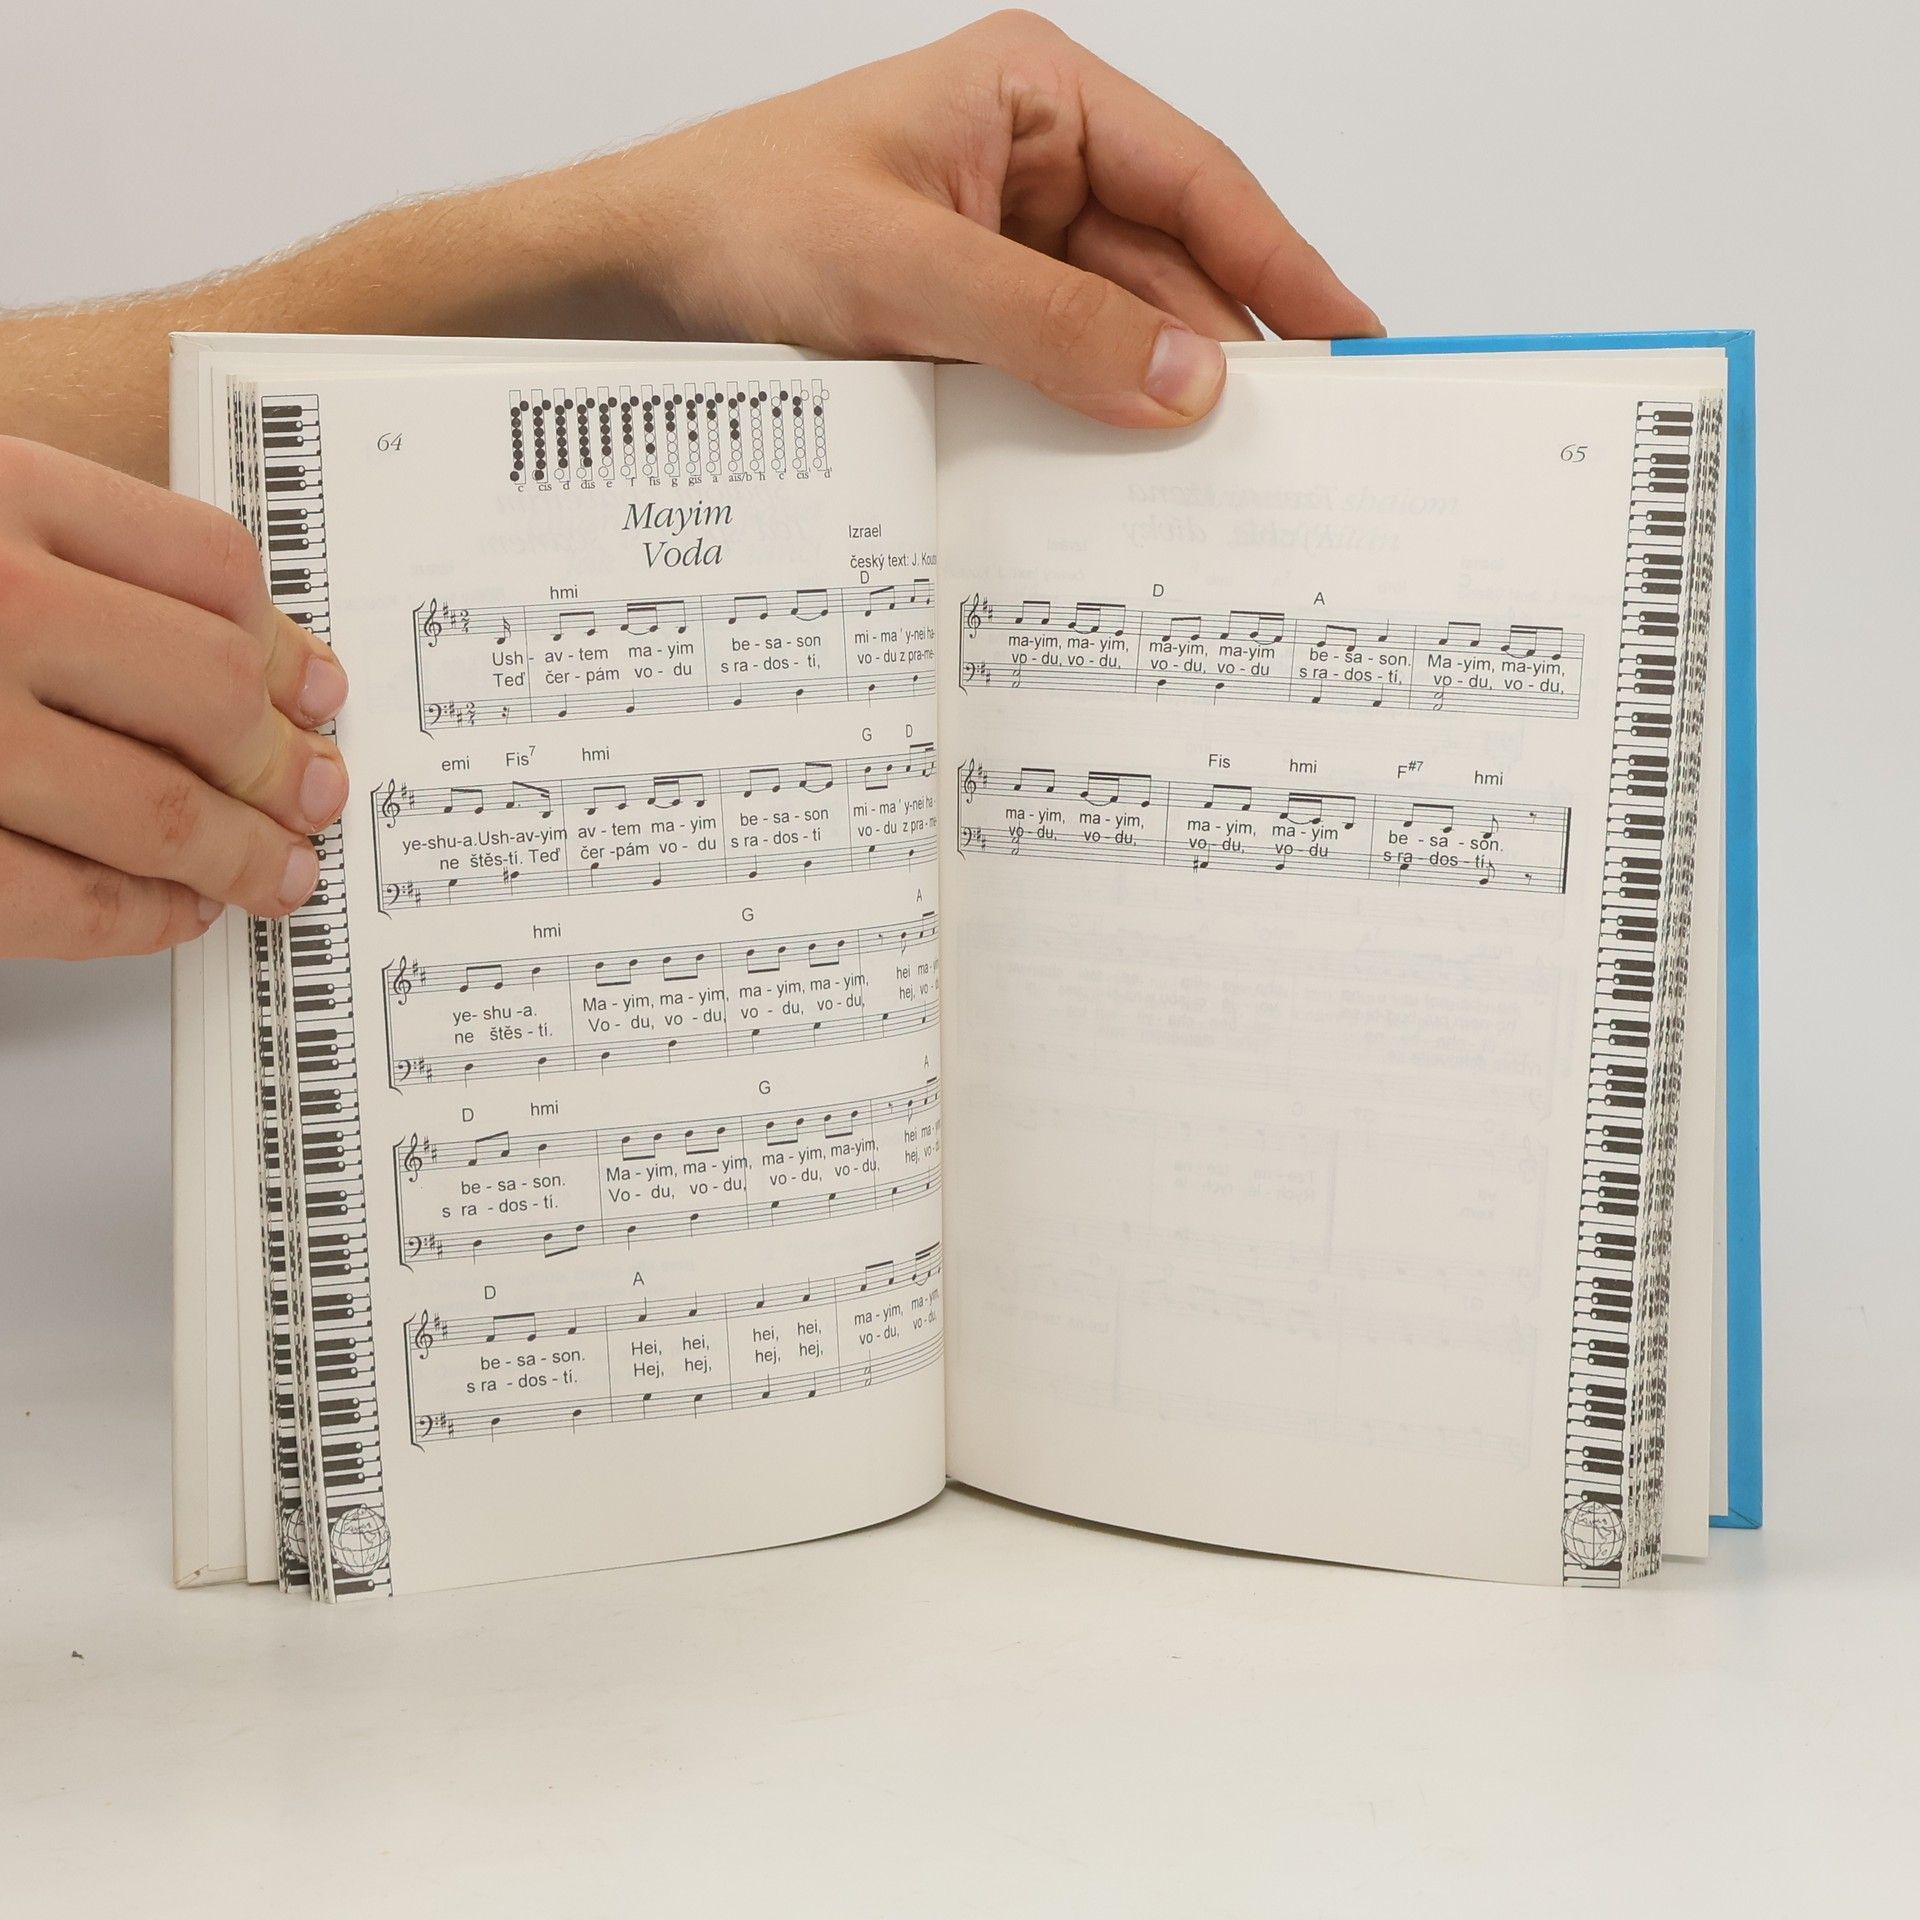 64
c cis d dis e f fis g gis a ais/b h c' cis' d'
Mayim
Voda
Izrael
český text: J.
hmi D
Ush - av - tem ma - yim be - sa - son mi - ma' y-nei ha-
Teď čer - pám vo - du s ra - dos - tí, vo - du z pra-me-
emi Fis7 hmi G D
ye-shu-a.Ush-av-yim av - tem ma - yim be - sa - son mi - ma' y-nei ha-
ne štěs-tí. Teď čer -pám vo - du s ra - dos - tí vo - du z pra - me-
hmi G A
ye- shu -a. Ma - yim, ma - yim, ma - yim, ma - yim, hei ma - yim
ne štěs - tí. Vo - du, vo - du, vo - du, vo - du, hej, vo -
D hmi G A
be - sa - son. Ma - yim, ma - yim, ma - yim, ma-yim, hei ma -
s ra - dos - tí. Vo - du, vo - du, vo - du, vo - du, hej, vo -
D A
be - sa - son. Hei, hei, hei, hei, ma - yim, ma - yim,
s ra - dos - tí. Hej, hej, hej, hej, vo - du, vo - du,
65
D A
ma-yim, ma- yim, ma-yim, ma-yim be - sa - son. Ma -yim, ma-yim,
vo - du, vo - du, vo - du, vo - du s ra - dos - tí, vo - du, vo - du,
Fis hmi F#7 hmi
ma - yim, ma - yim, ma - yim, ma - yim be - sa - son.
vo - du, vo - du, vo - du, vo - du s ra - dos - tí.